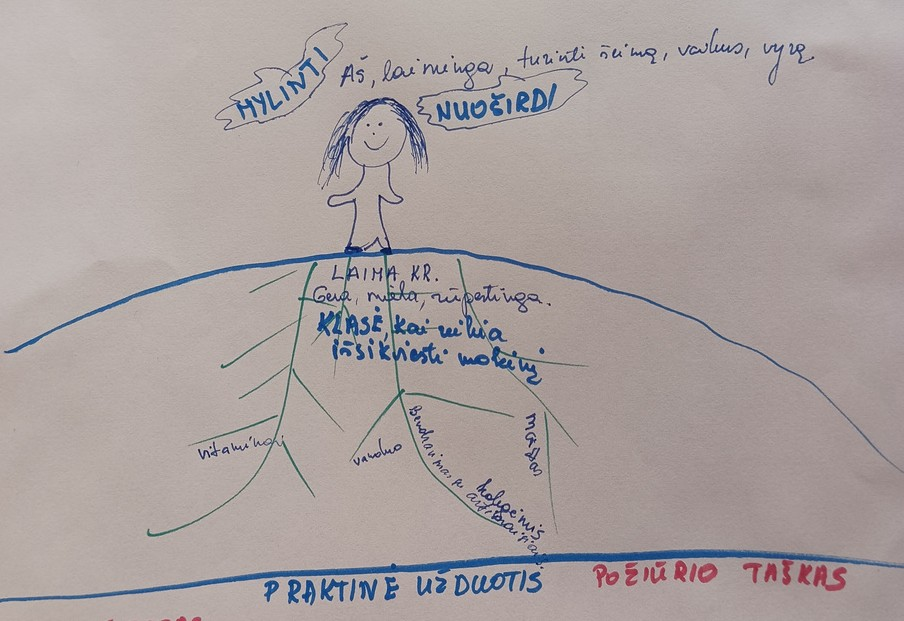 Aš, laiminga, turinti šeimą, vaikus, vyrą
MYLINTI
NUOŠIRDI
LAIMA KR.
Gera, miela, rūpestinga.
KLASĖ, kai reikia
išsikviesti mokinį
vitaminai
vanduo
Bendravimas su
kolegėmis
maistas
PRAKTINĖ UŽDUOTIS
POŽIŪRIO TAŠKAS